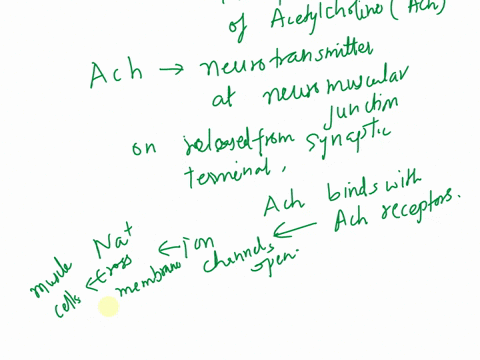 of Acetylcholine (Ach)
Ach → neurotransmitter
at neuromuscular
junction
on released from synaptic
terminal,
Ach binds with
Ach receptors.
← ion channels open.
Na+ cross membrane
← muscle cells